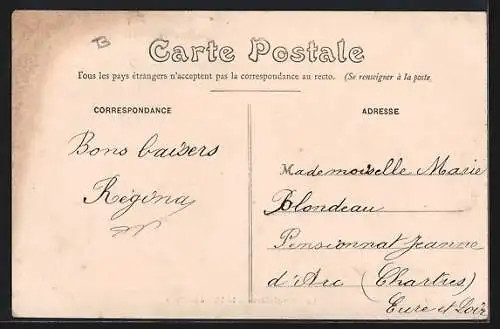 B
Carte Postale
Tous les pays étrangers n'acceptent pas la correspondance au recto. (Se renseigner à la poste.
CORRESPONDANCE
ADRESSE
Bons baisers
Régina
Mademoiselle Marie
Blondeau
Pensionnat Jeanne
d'Arc (Chartres)
Eure et Loir